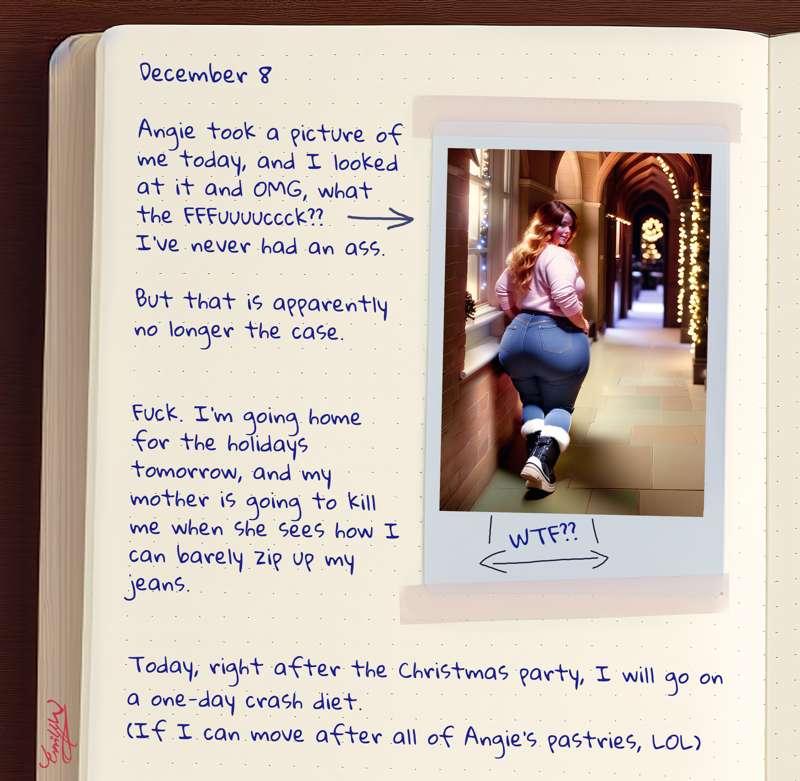 December 8
Angie took a picture of
me today, and I looked
at it and OMG, what
the FFFUUUUCCCK??
I've never had an ass.
But that is apparently
no longer the case.
Fuck. I'm going home
for the holidays
tomorrow, and my
mother is going to kill
me when she sees how I
can barely zip up my
jeans.
WTF??
Today, right after the Christmas party, I will go on
a one-day crash diet.
(If I can move after all of Angie's pastries, LOL)